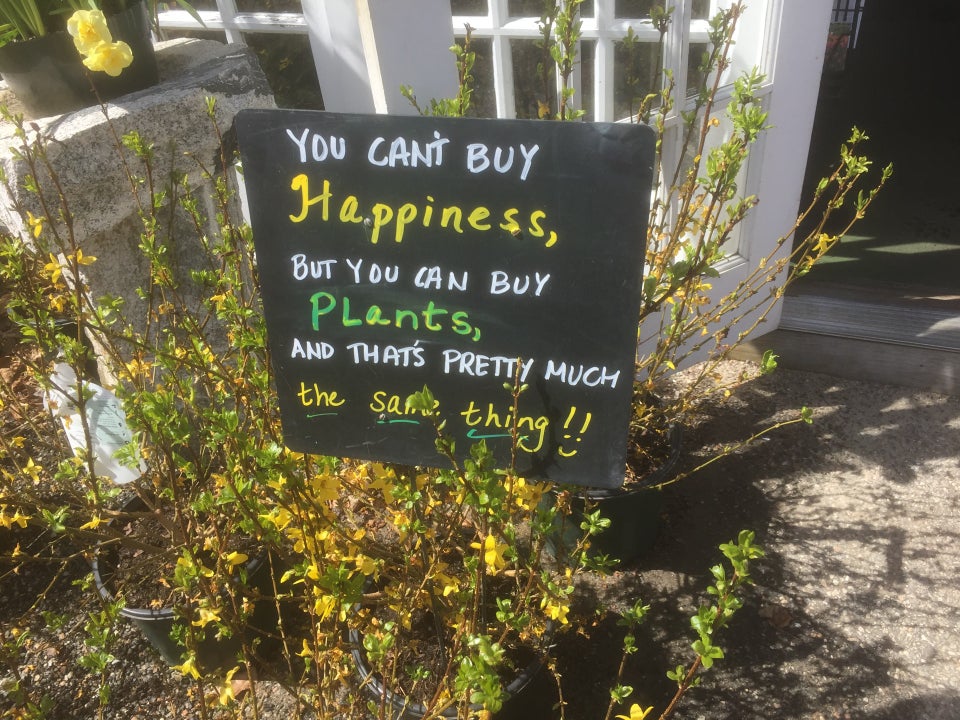 YOU CAN'T BUY
Happiness,
BUT YOU CAN BUY
PLants,
AND THAT'S PRETTY MUCH
the same thing!!